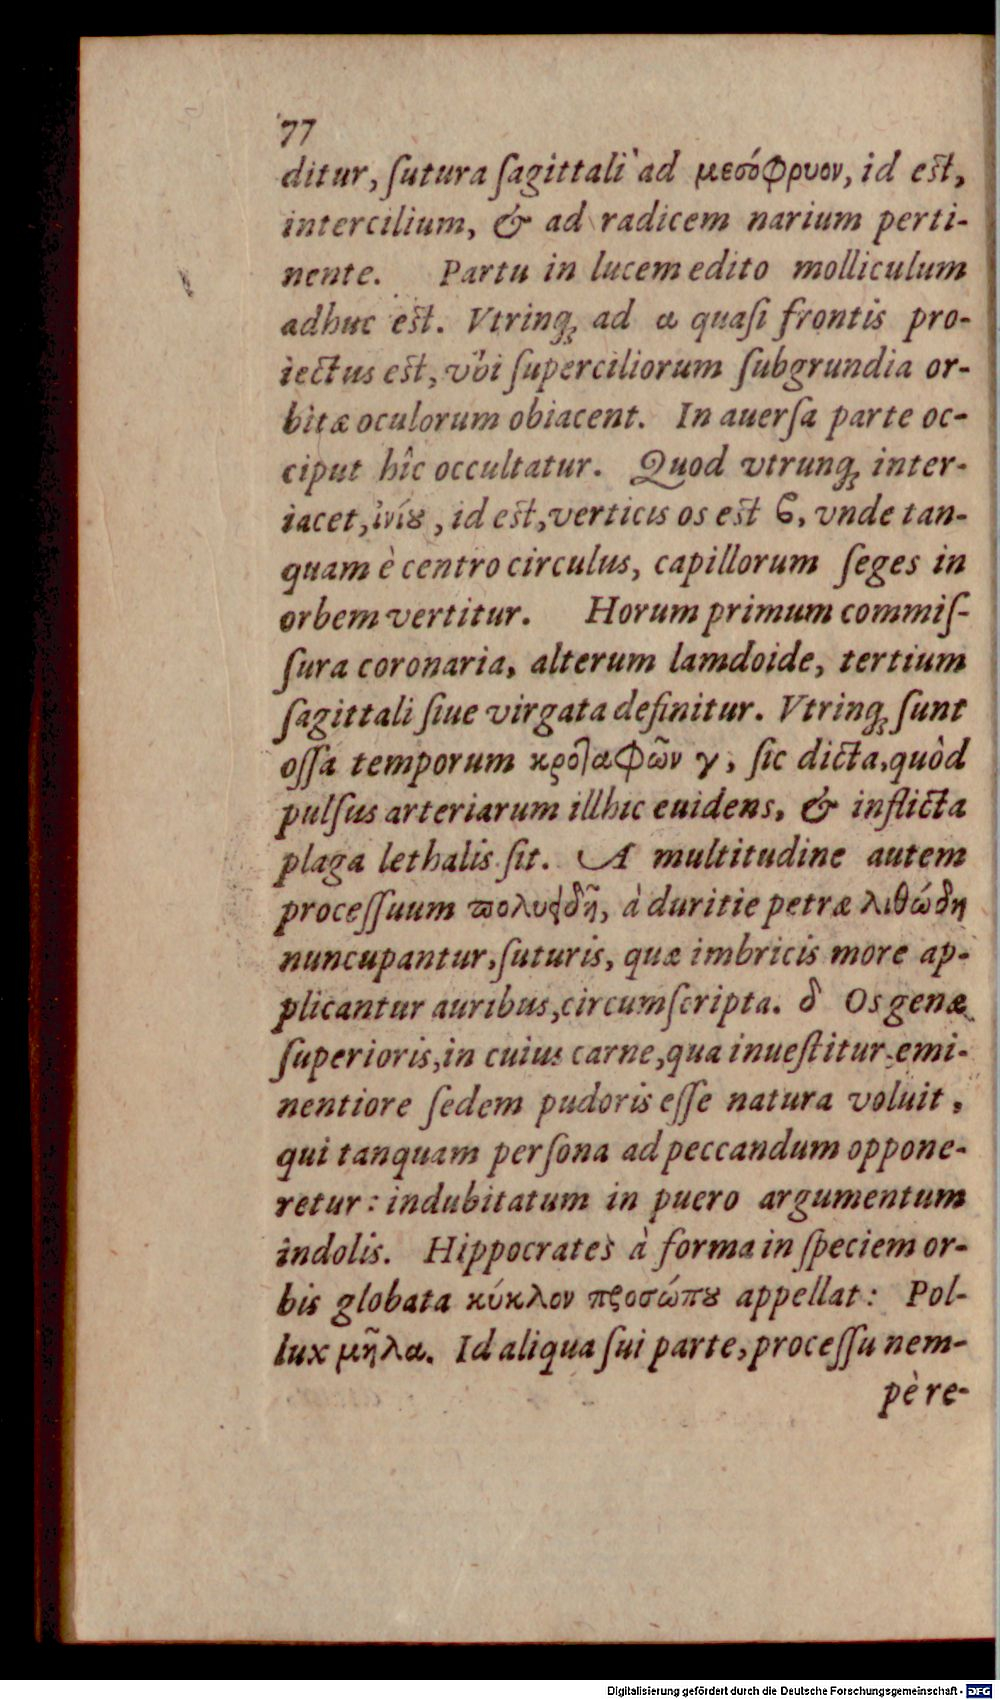 77
ditur, ſutura ſagittali ad μεσόφρυον, id eſt,
intercilium, & ad radicem narium perti-
nente. Partu in lucem edito molliculum
adhuc eſt. Vtrinq; ad α quaſi frontis pro-
iectus eſt, vbi ſuperciliorum ſubgrundia or-
bitæ oculorum obiacent. In auerſa parte oc-
ciput hîc occultatur. Quod vtrunq; inter-
iacet, ἰνίȣ, id eſt, verticis os eſt ϐ, vnde tan-
quam è centro circulus, capillorum ſeges in
orbem vertitur. Horum primum commiſ-
ſura coronaria, alterum lamdoide, tertium
ſagittali ſiue virgata definitur. Vtrinq; ſunt
oſſa temporum κροταφῶν γ, ſic dicta, quòd
pulſus arteriarum illhic euidens, & inflicta
plaga lethalis ſit. A multitudine autem
proceſſuum πολυφδῆ, à duritie petræ λιθώδη
nuncupantur, ſuturis, quæ imbricis more ap-
plicantur auribus, circumſcripta. δ Os genæ
ſuperioris, in cuius carne, qua inueſtitur emi-
nentiore ſedem pudoris eſſe natura voluit,
qui tanquam perſona ad peccandum oppone-
retur: indubitatum in puero argumentum
indolis. Hippocrates à forma in ſpeciem or-
bis globata κύκλον προσώπȣ appellat: Pol-
lux μῆλα. Id aliqua ſui parte, proceſſu nem-
pè re-
Digitalisierung gefördert durch die Deutsche Forschungsgemeinschaft - DFG